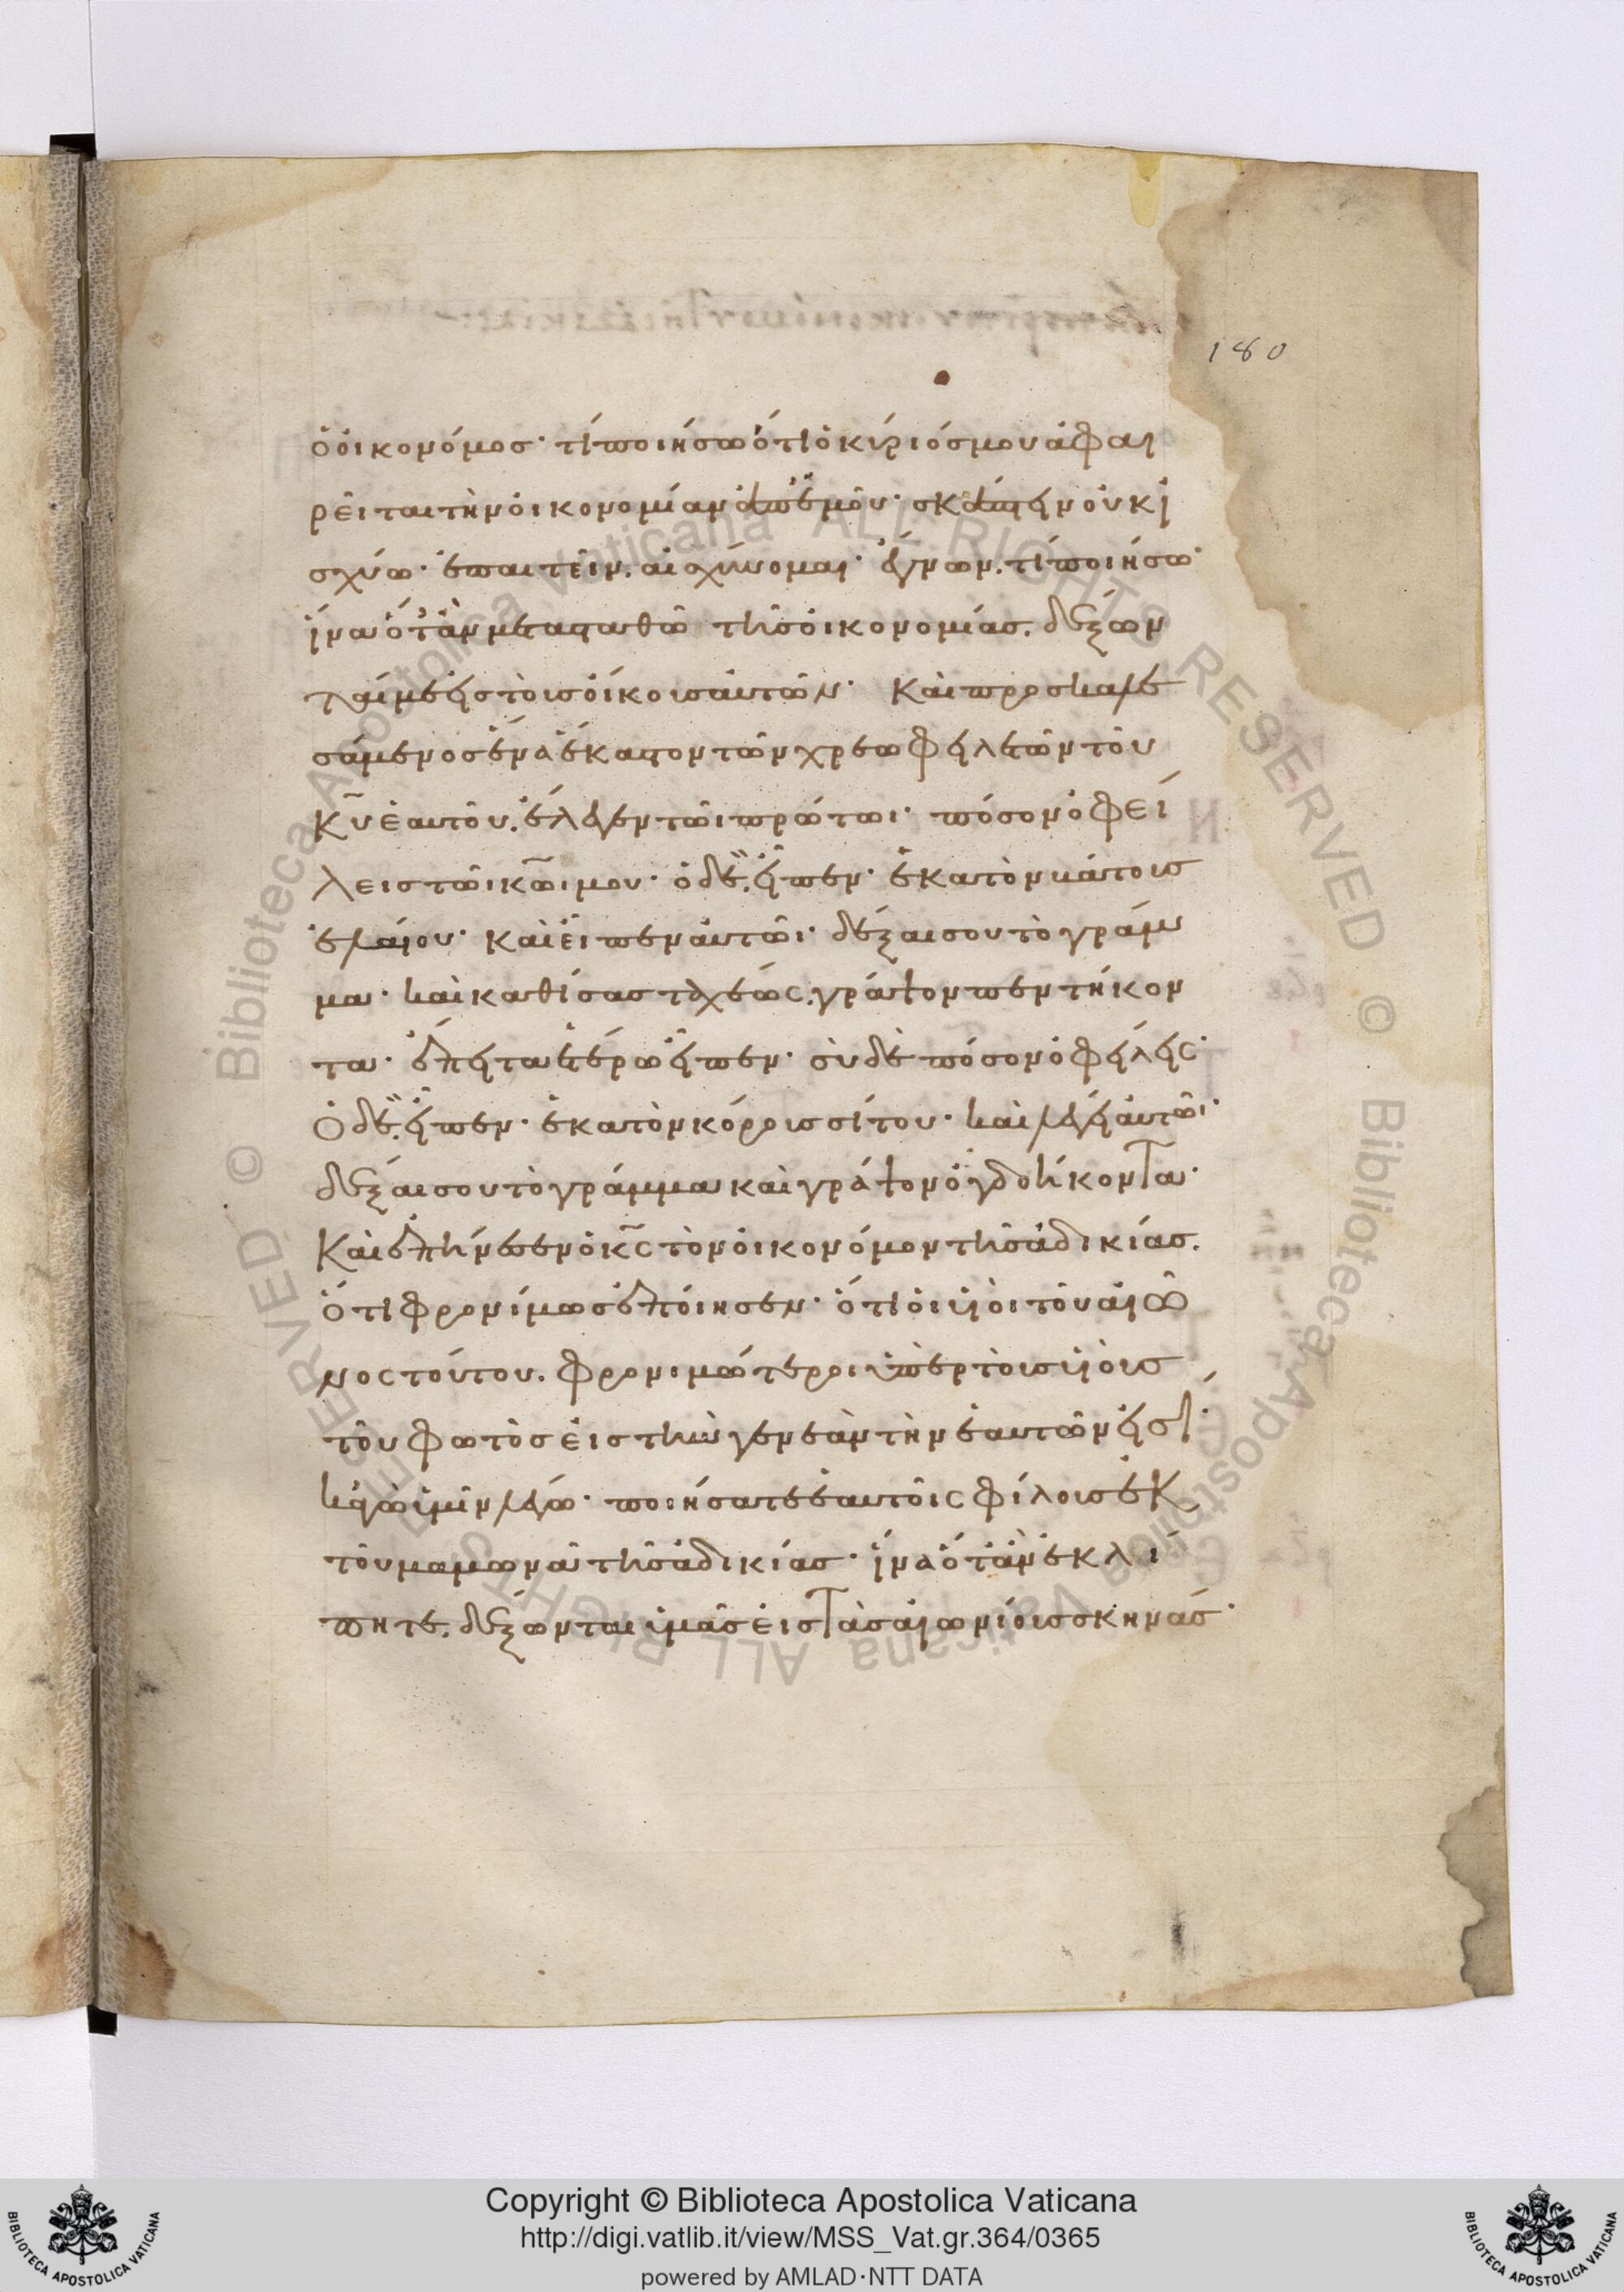 180
ὁ οἰκονόμος· τί ποιήσω ὅτι ὁ κύριός μου ἀφαι
ρεῖται τὴν οἰκονομίαν ἀπ' ἐμοῦ· σκάπτειν οὐκ ἰ
σχύω· ἐπαιτεῖν. αἰσχύνομαι· ἔγνων. τί ποιήσω·
ἵνα ὅταν μετασταθῶ τῆς οἰκονομίας. δέξων
ταί με εἰς τοὺς οἴκους αὐτῶν· Καὶ προσκαλε
σάμενος ἕνα ἕκαστον τῶν χρεωφειλετῶν τοῦ
κ̅υ̅ ἑαυτοῦ. ἔλεγεν τῶι πρώτωι· πόσον ὀφεί
λεις τῶι κ̅ω̅ι μου· ὁ δὲ. εἶπεν· ἑκατὸν βάτους
ἐλαίου· καὶ εἶπεν αὐτῶι· δέξαι σου τὸ γράμ
μα· καὶ καθίσας ταχέως. γράψον πεντήκον
τα· ἔπειτα ἑτέρω εἶπεν· σὺ δὲ πόσον ὀφείλεις·
Ὁ δὲ. εἶπεν· ἑκατὸν κόρους σίτου· καὶ λέγει αὐτῶι·
δέξαι σου τὸ γράμμα καὶ γράψον ὀγδοήκοντα·
Καὶ ἐπήνεσεν ὁ κ̅ς̅ τὸν οἰκονόμον τῆς ἀδικίας.
ὅτι φρονίμως ἐποίησεν· ὅτι οἱ υἱοὶ τοῦ αἰῶ
νος τούτου. φρονιμώτεροι ὑπὲρ τοὺς υἱοὺς
τοῦ φωτὸς εἰς τὴν γενεὰν τὴν ἑαυτῶν εἰσι·
κἀγὼ ὑμῖν λέγω· ποιήσατε ἑαυτοῖς φίλους ἐκ
τοῦ μαμωνᾶ τῆς ἀδικίας· ἵνα ὅταν ἐκλί
πητε. δέξωνται ὑμᾶς εἰς τὰς αἰωνίους σκηνάς·
© Biblioteca Apostolica Vaticana ALL RIGHTS RESERVED © Biblioteca Apostolica Vaticana ALL RIGHTS RESERVED
BIBLIOTECA APOSTOLICA VATICANA
Copyright © Biblioteca Apostolica Vaticana
http://digi.vatlib.it/view/MSS_Vat.gr.364/0365
powered by AMLAD·NTT DATA
BIBLIOTECA APOSTOLICA VATICANA